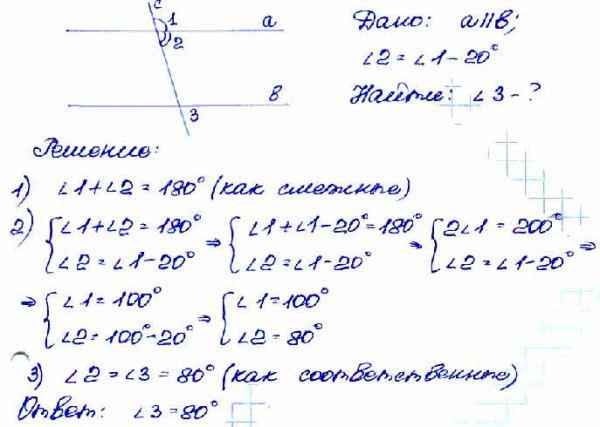 c
1 a
2
3 в
Дано: a∥в;
∠2 = ∠1 - 20°
Найти: ∠3 - ?
Решение:
1) ∠1 + ∠2 = 180° (как смежные)
2) { ∠1 + ∠2 = 180° ⇒ { ∠1 + ∠1 - 20° = 180° ⇒ { 2∠1 = 200° ⇒
∠2 = ∠1 - 20° ∠2 = ∠1 - 20° ∠2 = ∠1 - 20°
⇒ { ∠1 = 100° ⇒ { ∠1 = 100°
∠2 = 100° - 20° ∠2 = 80°
3) ∠2 = ∠3 = 80° (как соответственные)
Ответ: ∠3 = 80°